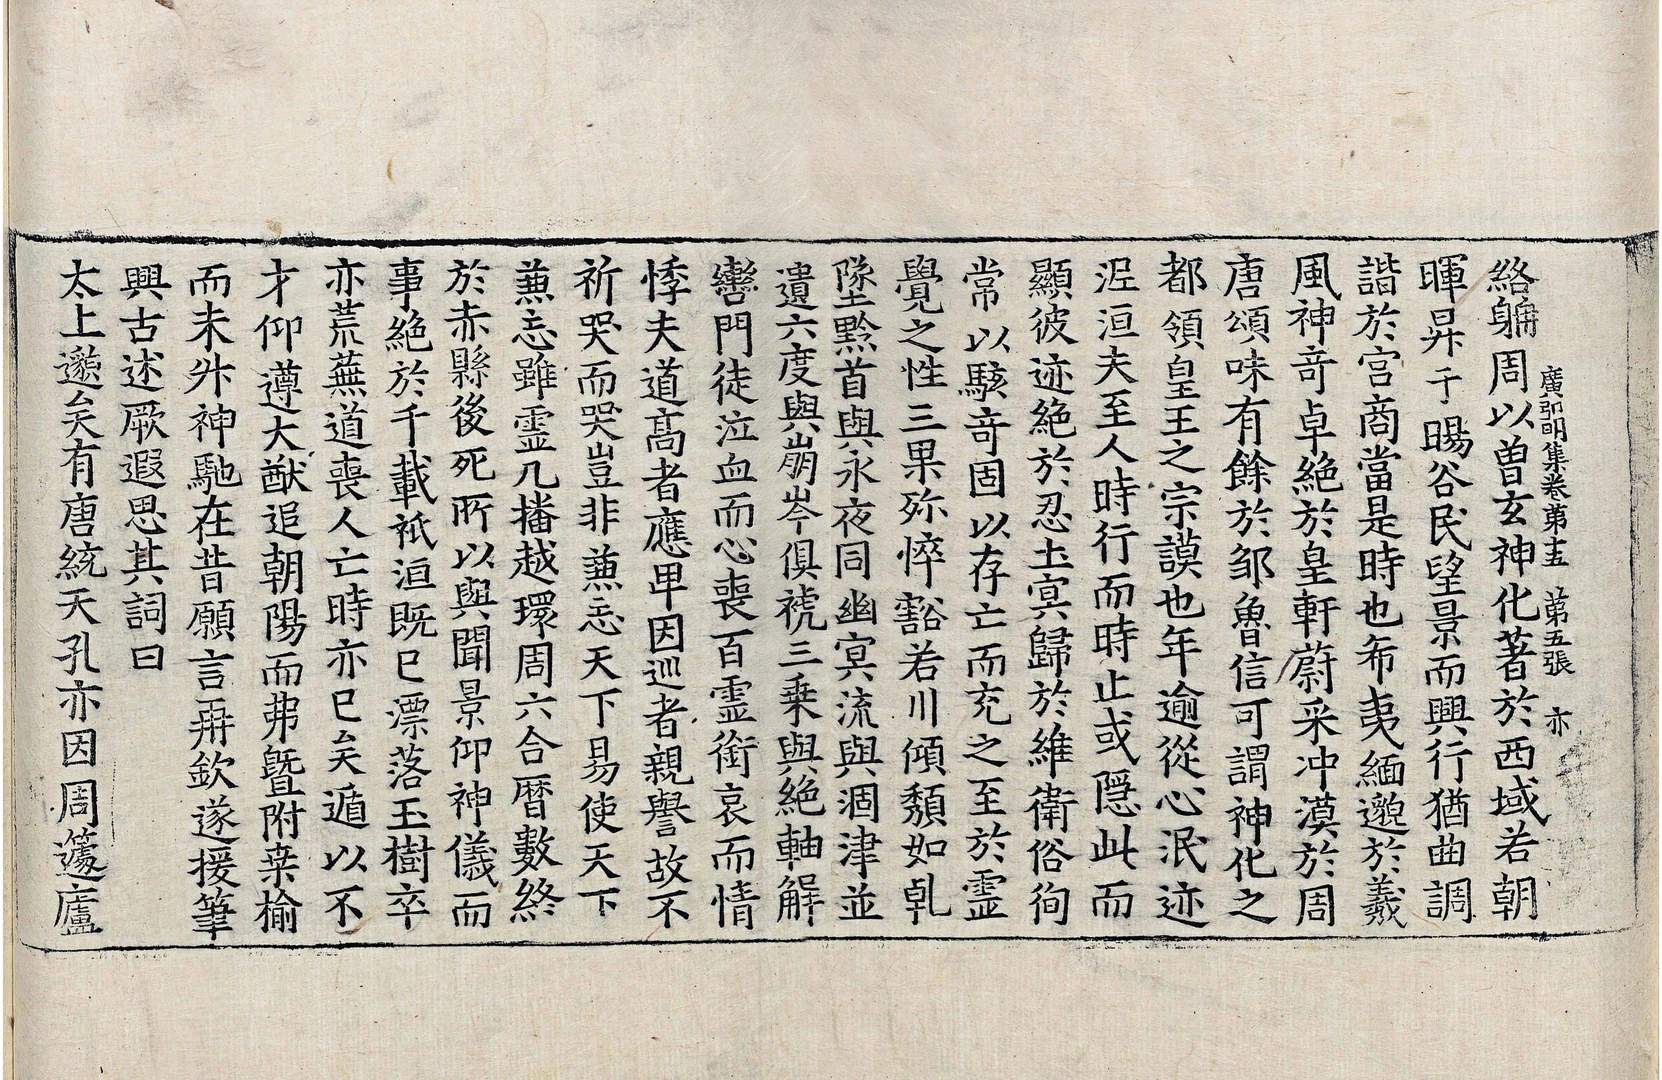 廣弘明集卷第十五　第五張　亦
絡躺周以曽玄神化著於西域若朝
暉昇于暘谷民望景而興行猶曲調
諧於宫商當是時也布夷緬邈於羲
風神竒卓絶於皇軒蔚采冲漠於周
唐頌味有餘於邹魯信可謂神化之
都領皇王之宗謨也年逾從心泯迹
泥洹夫至人時行而時止或隱此而
顯彼迹絶於忍土冥歸於維衛俗徇
常以駭竒固以存亡而充之至於霊
覺之性三果殄悴豁若川傾頽如乹
墜黔首與永夜同幽冥流與涸津並
遺六度與崩岑俱褫三乗與絶軸解
轡門徒泣血而心喪百霊銜哀而情
悸夫道髙者應卑因巡者親譽故不
祈哭而哭豈非兼忘天下易使天下
兼忘雖霊几播越環周六合曆數終
於赤縣後死所以與聞景仰神儀而
事絶於千載祇洹既已漂落玉樹卒
亦荒蕪道喪人亡時亦已矣遁以不
才仰遵大猷追朝陽而弗暨附桒榆
而未升神馳在昔願言再欽遂援筆
興古述厥遐思其詞曰
太上邈矣有唐統天孔亦因周蘧廬